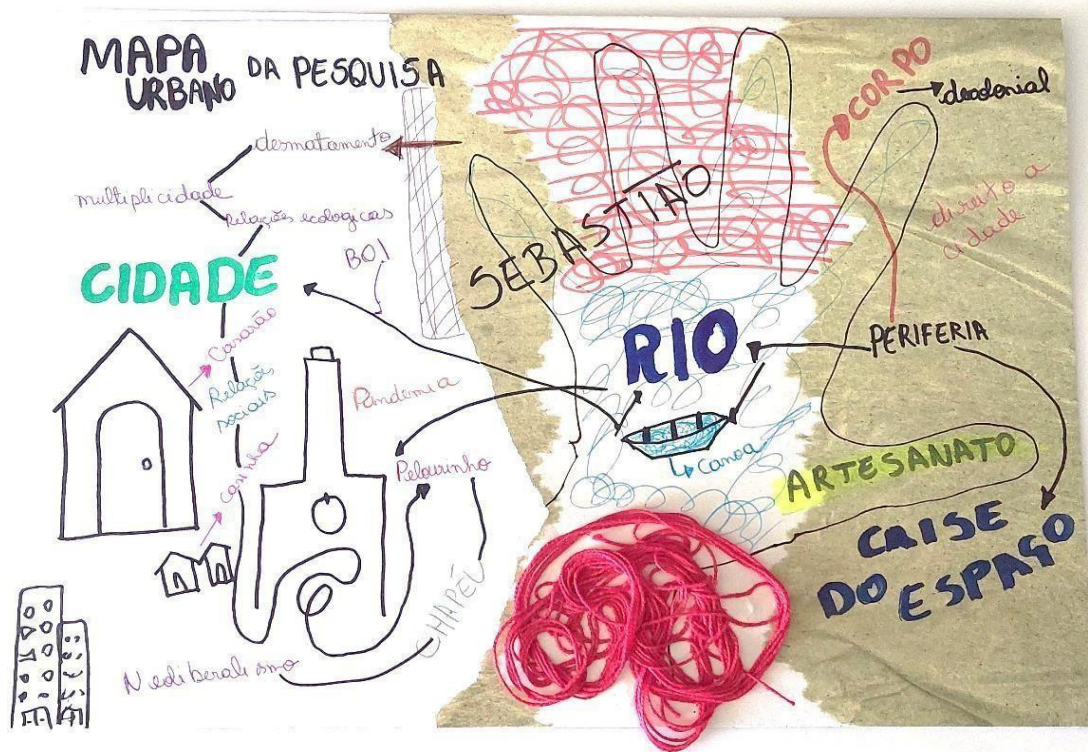 MAPA
URBANO DA PESQUISA
desmatamento
multiplicidade
Relações ecologicas
BOI
CIDADE
Casarão
Relações
sociais
casinha
Pandemia
Pelourinho
CHAPÉU
Neoliberalismo
SEBASTIÃO
RIO
Canoa
CORPO
decolonial
direito a
cidade
PERIFERIA
ARTESANATO
CRISE
DO ESPAÇO